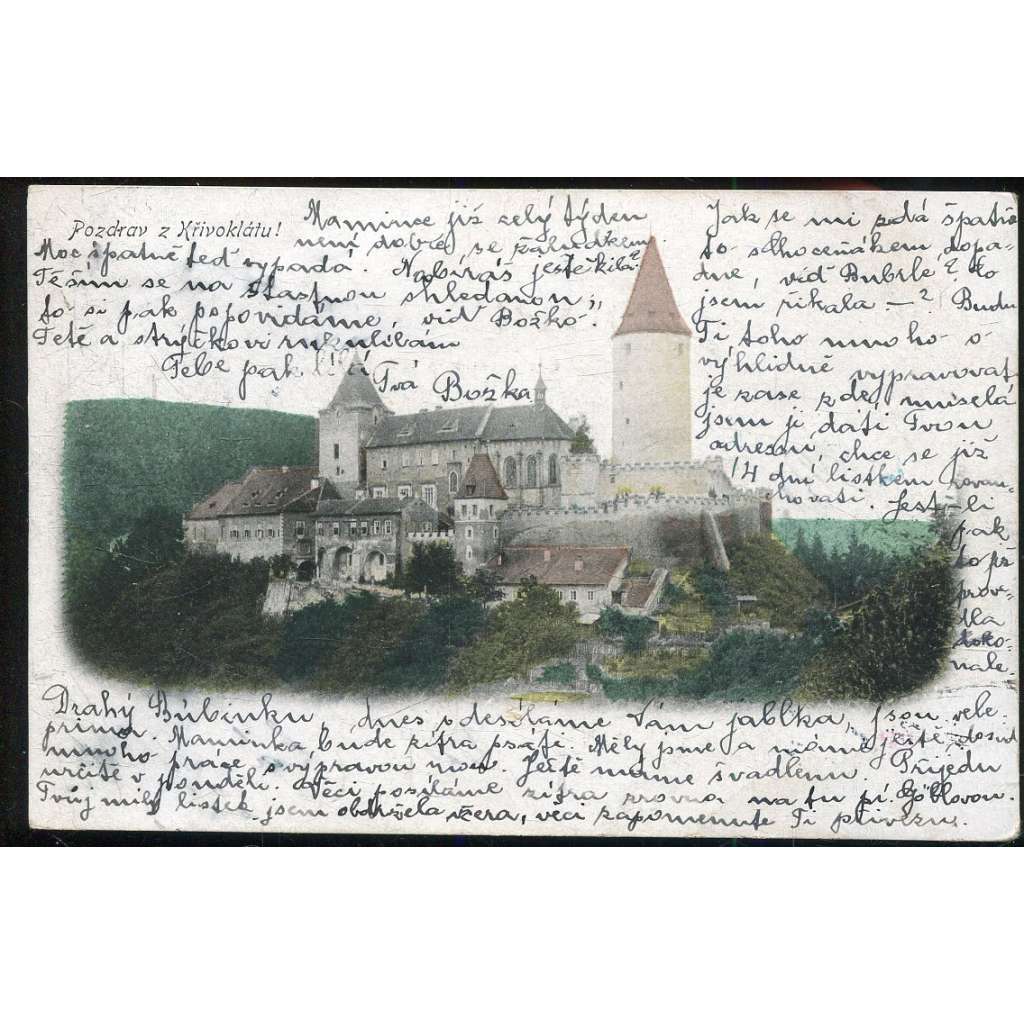 Pozdrav z Křivoklátu!
Drahý Bubínku, dnes odesíláme Vám jablka, jsou vele-
prima. Maminka bude zítra psáti. Měly jsme a máme ještě dosud
mnoho práce s výpravou nov. Ještě máme švadlenu. Přijedu
určitě v pondělí. Věci posíláme zítra zrovna na tu pí.
Tvůj milý lístek jsem obdržela včera, věci zapomenuté Ti přivezu.
Mamince již celý týden
není dobře se žaludkem.
Moc špatně teď vypadá. Nabíráš ještě kila?
Těším se na šťastnou shledanou,
to si pak popovídáme, viď Božko?
Tetě a strýčkovi ruku líbám
Tebe pak líbá
Tvá Božka
Jak se mi zdá špatně
to s dopa-
dne, viď Bubrle? Co
jsem říkala –? Budu
Ti toho mnoho o
vyhlídně vypravovat
je zase zde, musela
jsem jí dáti Tvou
adresu, chce se již
14 dní lístkem
Jest-li
pak
to
prov-
dla
koko-
nale-